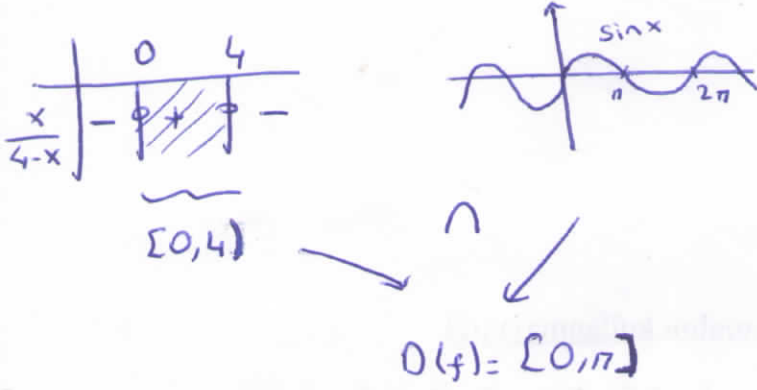 0 4
x/(4-x) − + −
[0,4)
sinx
π 2π
∩
D(f)= [0,π]